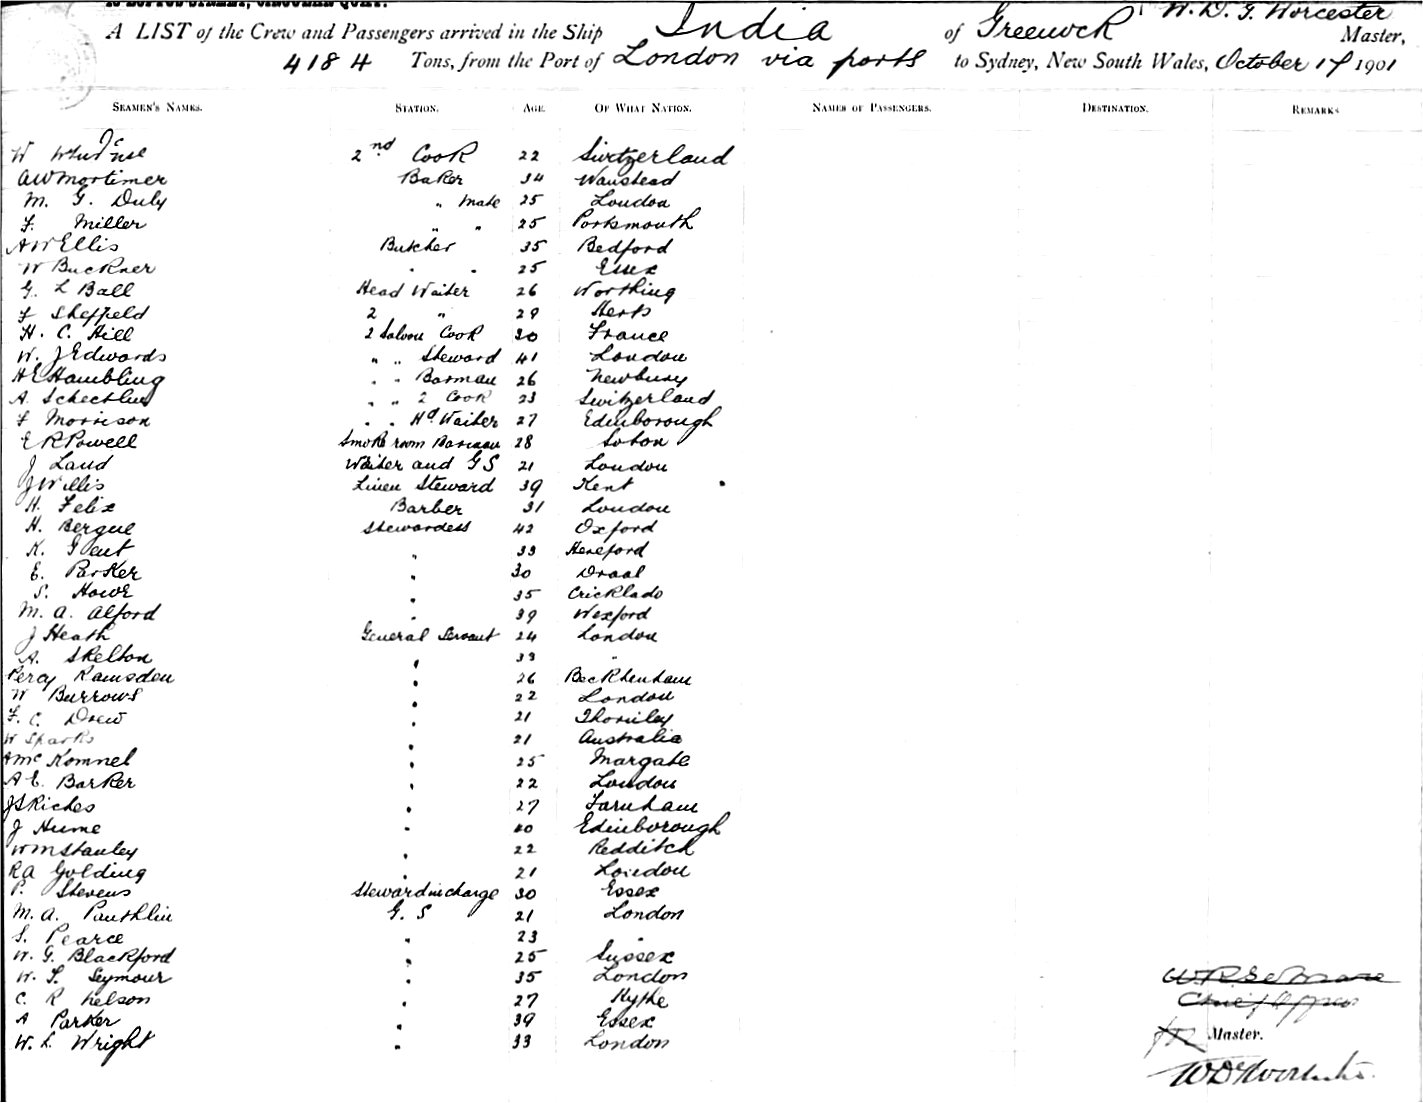 W. D. G. Worcester
A LIST of the Crew and Passengers arrived in the Ship India of Greenock Master,
4184 Tons, from the Port of London via ports to Sydney, New South Wales, October 17 1901
SEAMEN'S NAMES. STATION. AGE. OF WHAT NATION. NAMES OF PASSENGERS. DESTINATION. REMARKS
W 2nd Cook 22 Switzerland
AW Mortimer Baker 34 Wanstead
M. G. Duly " Mate 25 London
F. Miller " " 25 Portsmouth
A W Ellis Butcher 35 Bedford
W Buckner " " 25 Essex
G. L Ball Head Waiter 26 Worthing
F Sheffield 2 " 29 Herts
H. C. Hill 2 Saloon Cook 30 France
W. J Edwards " " Steward 41 London
H E Hambling " " Barman 26 Newbury
A. " " 2 Cook 23 Switzerland
F Morrison " " Hd Waiter 27 Edinborough
E R Powell Smoke room Barman 28 Soton
J Land Waiter and G S 21 London
J Willis Linen Steward 39 Kent
H. Felix Barber 31 London
H. Bergue Stewardess 42 Oxford
K. Gent " 33 Hereford
E. Parker " 30
S. Howe " 35 Cricklado
M. A. Alford " 39 Wexford
J Heath General Servant 24 London
A. Skelton " 33 "
Percy Ramsden " 26 Beckhenham
W Burrows " 22 London
F. C. Drew " 21 Thornley
W Sparks " 21 Australia
A Mc Kommel " 25 Margate
A E. Barker " 22 London
J S Riches " 27 Farnham
J Hume " 40 Edinborough
W M Stanley " 22 Redditch
R A Golding " 21 London
P. Stevens Steward in charge 30 Essex
M. A. G. S 21 London
S. Pearce " 23 "
W. G. Blackford " 25 Sussex
W. S. Seymour " 35 London
C. R Nelson " 27 Hythe
A Parker " 39 Essex
W. L. Wright " 33 London
Chief Officer
Master.
W D G Worcester